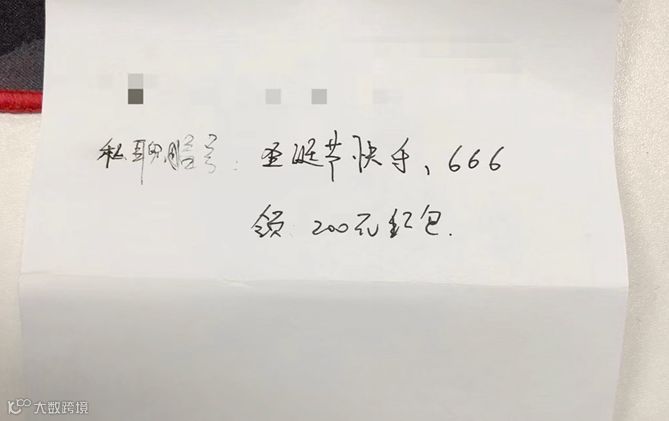 私聊暗号：圣诞节快乐、666
领 200元红包.
大数跨境